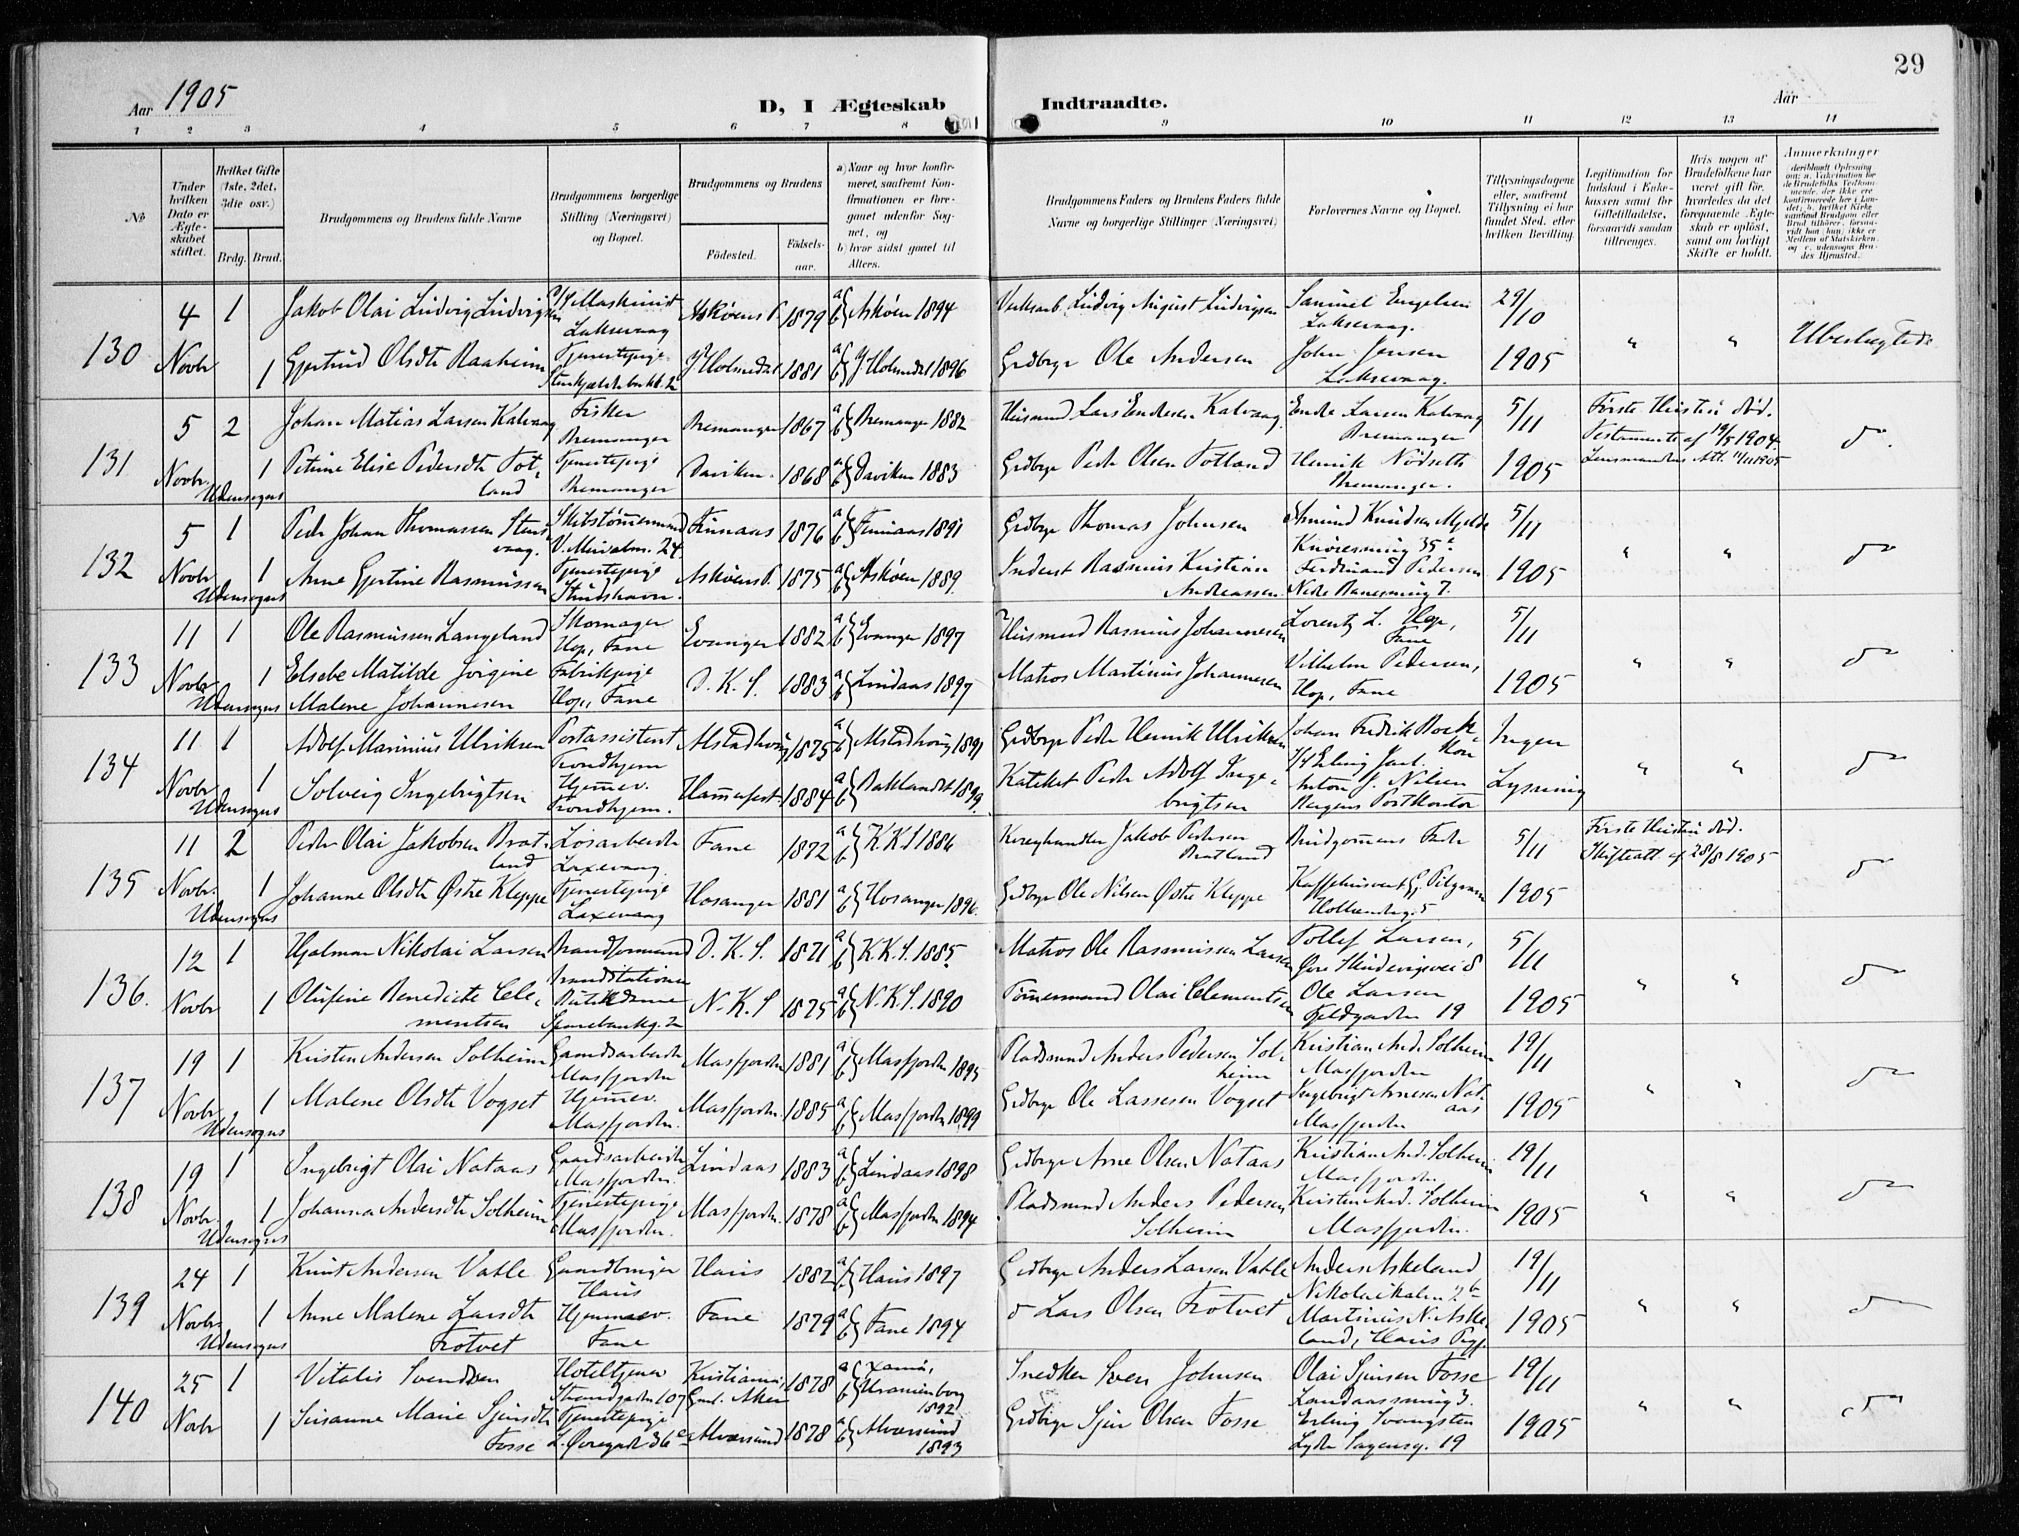 29
Aar 1905
D, I Ægteskab Indtraadte.
Aar
1 2 3 4 5 6 7 8 9 10 11 12 13 14
No
Under hvilken Dato er Ægteskabet stiftet.
Hvilket Gifte (1ste, 2det, 3die osv.)
Brdg. Brud.
Brudgommens og Brudens fulde Navne
Brudgommens borgerlige Stilling (Næringsvei) og Bopæl.
Brudgommens og Brudens
Fødested. Fødselsaar.
a) Naar og hvor konfirmeret, saafremt Konfirmationen er foregaaet udenfor Sognet, og
b) hvor sidst gaael til Alters.
Brudgommens Faders og Brudens Faders fulde Navne og borgerlige Stillinger (Næringsvei)
Forlovernes Navne og Bopæl.
Tillysningsdagene eller, saafremt Tillysning ei har fundet Sted, efter hvilken Bevilling.
Legitimation for Indskud i Enkekassen samt for Giftetilladelse, forsaavidt saadan tiltrænges.
Hvis nogen af Brudefolkene har været gift før, hvorledes da det foregaaende Ægteskab er opløst, samt om lovligt Skifte er holdt.
Anmerkninger
130 4 Novbr 1 Jakob Olai Ludvig Ludvigsen
Maskinist Laksevaag
Askøens P. 1879 a b Askøen 1894
Ludvig August Ludvigsen
Samuel Engelsen Laksevaag.
29/10 1905 " " Ubeslægtede
1 Gjertrud Olsdtr Raaheim
Tjenestepige
Y Holmedal 1881 a b Y Holmedal 1896
Grdbrgr Ole Andersen
John Jensen Laksevaag.
131 5 Novbr. 2 Johan Matias Larsen Kalvaag
Fisker Bremanger
Bremanger 1867 a b Bremanger 1882
Husmand Lars Endresen Kalvaag
Endre Larsen Kalvaag Bremanger
5/11 1905
Første Hustru død.
Testamente af 19/5 1904.
Lensmandens Att. 11/11 1905
do
Udensogns 1 Petrine Elise Pedersdtr Totland
Tjenestepige Bremanger
Daviken. 1868 a b Daviken 1883
Grdbrgr Peder Olsen Totland
Henrik Nødseth Bremanger.
132 5 Novbr 1 Peder Johan Thomassen Stensvaag.
Skibstømmermand 24
Finnaas 1876 a b Finnaas 1891
Grdbrgr Thomas Johnsen
Amund Knudsen Mjelde
5/11 1905 " " do
Udensogns 1 Anne Gjertine Rasmussen
Tjenestepige Strudshavn.
Askøens P. 1875 a b Askøen 1889.
Inderst Rasmus Kristian Andreassen
Ferdinand Pedersen
133 11 Novbr 1 Ole Rasmussen Langeland
Skomager Hop, Fane
Evanger 1882 a b Evanger 1897
Husmand Rasmus Johannesen
Lorentz L. Hop, Fane
5/11 1905 " " do
Udensogns 1 Elsebe Matilde Jørgine Malene Johannesen
Fabrikpige Hop, Fane
D. K. S. 1883 a b Lindaas 1897
Matros Martinus Johannesen
Vilhelm Pedersen, Hop, Fane
134 11 Novbr 1 Adolf Marinius Ulriksen
Postassistent Trondhjem
Alstadhoug 1875 a b Alstadhoug 1891
Grdbrgr Peder Henrik Ulriksen
Johan Fredrik Bock
Erling Jarl.
Ingen Lysning " " do
Udensogns 1 Solveig Ingebrigtsen
Hjemmev. Trondhjem.
Hammerfest 1884 a b Baklandet 1899.
Kateket Peder Adolf Ingebrigtsen
Anton J. Nilsen Bergens Postkontor
135 11 Novbr. 2 Peder Olai Jakobsen Bratland
Løsarbeider Laxevaag.
Fane 1872 a b K. K. S 1886
Jakob Pedersen Bratland
Brudgommens Fader
5/11 1905
Første Hustru død.
Skifteatt. af 28/8 1905
do
Udensogns 1 Johanne Olsdtr Østre Kleppe
Tjenestepige Laxevaag
Hosanger 1881 a b Hosanger 1896.
Grdbrgr Ole Nilsen Østre Kleppe
136. 12 Novbr 1 Hjalmar Nikolai Larsen
Brandformand Brandstationen
D. K. S. 1871 a b K. K. S. 1885.
Matros Ole Rasmussen Larsen
Tollef Larsen, Øvre Skudevigsvei 8
5/11 1905 " " do
1 Olufine Benedicte Clementsen
Butikdame Sparebankg. 2a
N. K. S 1875 a b N. K. S 1890
Tømmermand Olai Clementsen
Ole Larsen Fjeldgaden 19
137 19 Novbr 1 Kristen Andersen Solheim
Gaardsarbeider Masfjorden
Masfjorden 1881 a b Masfjorden 1895
Pladsmand Anders Pedersen Solheim
Kristian And. Solheim Masfjorden
19/11 1905 " " do
Udensogns 1 Malene Olsdtr Vogset
Hjemmev. Masfjorden.
Masfjorden. 1885 a b Masfjorden 1899
Grdbrgr Ole Lassesen Vogset
Ingebrigt Arnesen Nataas Masfjorden
138 19 Novbr. 1 Ingebrigt Olai Nataas
Gaardsarbeider Masfjorden.
Lindaas 1883 a b Lindaas 1898
Grdbrgr Arne Olsen Nataas
Kristian And. Solheim Masfjorden
19/11 1905 " " do
Udensogns 1 Johanna Andersdtr Solheim
Tjenestepige Masfjorden.
Masfjorden. 1878 a b Masfjorden 1894
Pladsmand Anders Pedersen Solheim
Kristen And. Solheim Masfjorden.
139 24 Novbr. 1 Knut Andersen Vatle
Gaardbruger Haus
Haus 1882 a b Haus 1897
Grdbrgr Anders Larsen Vatle
Anders Askeland
19/11 1905 " " do
Udensogns 1 Anne Malene Larsdtr Frotvet
Hjemmev. Fane
Fane 1879 a b Fane 1894
do Lars Olsen Frotvet
Martinius N. Askeland, Haus
140 25 Novbr 1 Vitalis Svendsen
Hoteltjener Strandgaden 107
Kristiania, Gml. Aker 1878 a b Xania, Uranienborg 1892
Snedker Sven Johnsen
Olai Sjursen Fosse
19/11 1905 " " do
1 Susanne Marie Sjursdtr Fosse
Tjenestepige
Alversund 1878 a b Alversund 1893
Grdbrgr Sjur Olsen Fosse
Erling Svangsten
Lyder Sagensg. 19